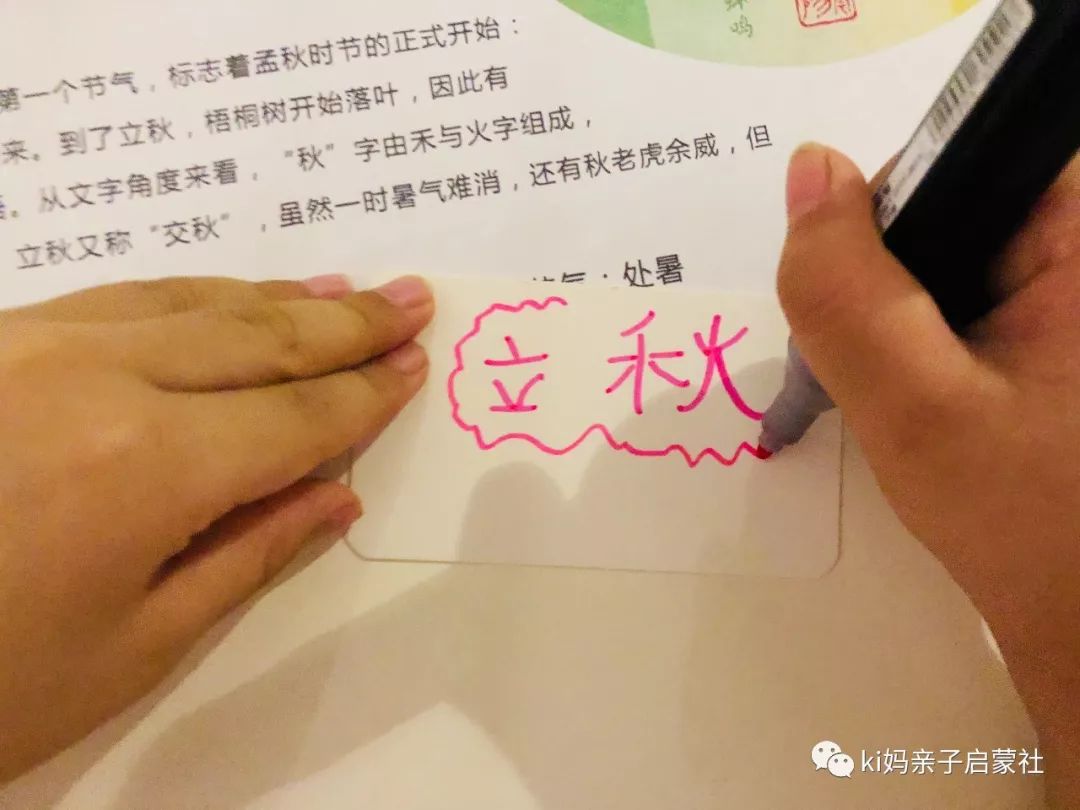 蝉鸣
第一个节气，标志着孟秋时节的正式开始：
来。到了立秋，梧桐树开始落叶，因此有
。从文字角度来看，“秋”字由禾与火字组成，
立秋又称“交秋”，虽然一时暑气难消，还有秋老虎余威，但
气：处暑
立 秋
ki妈亲子启蒙社